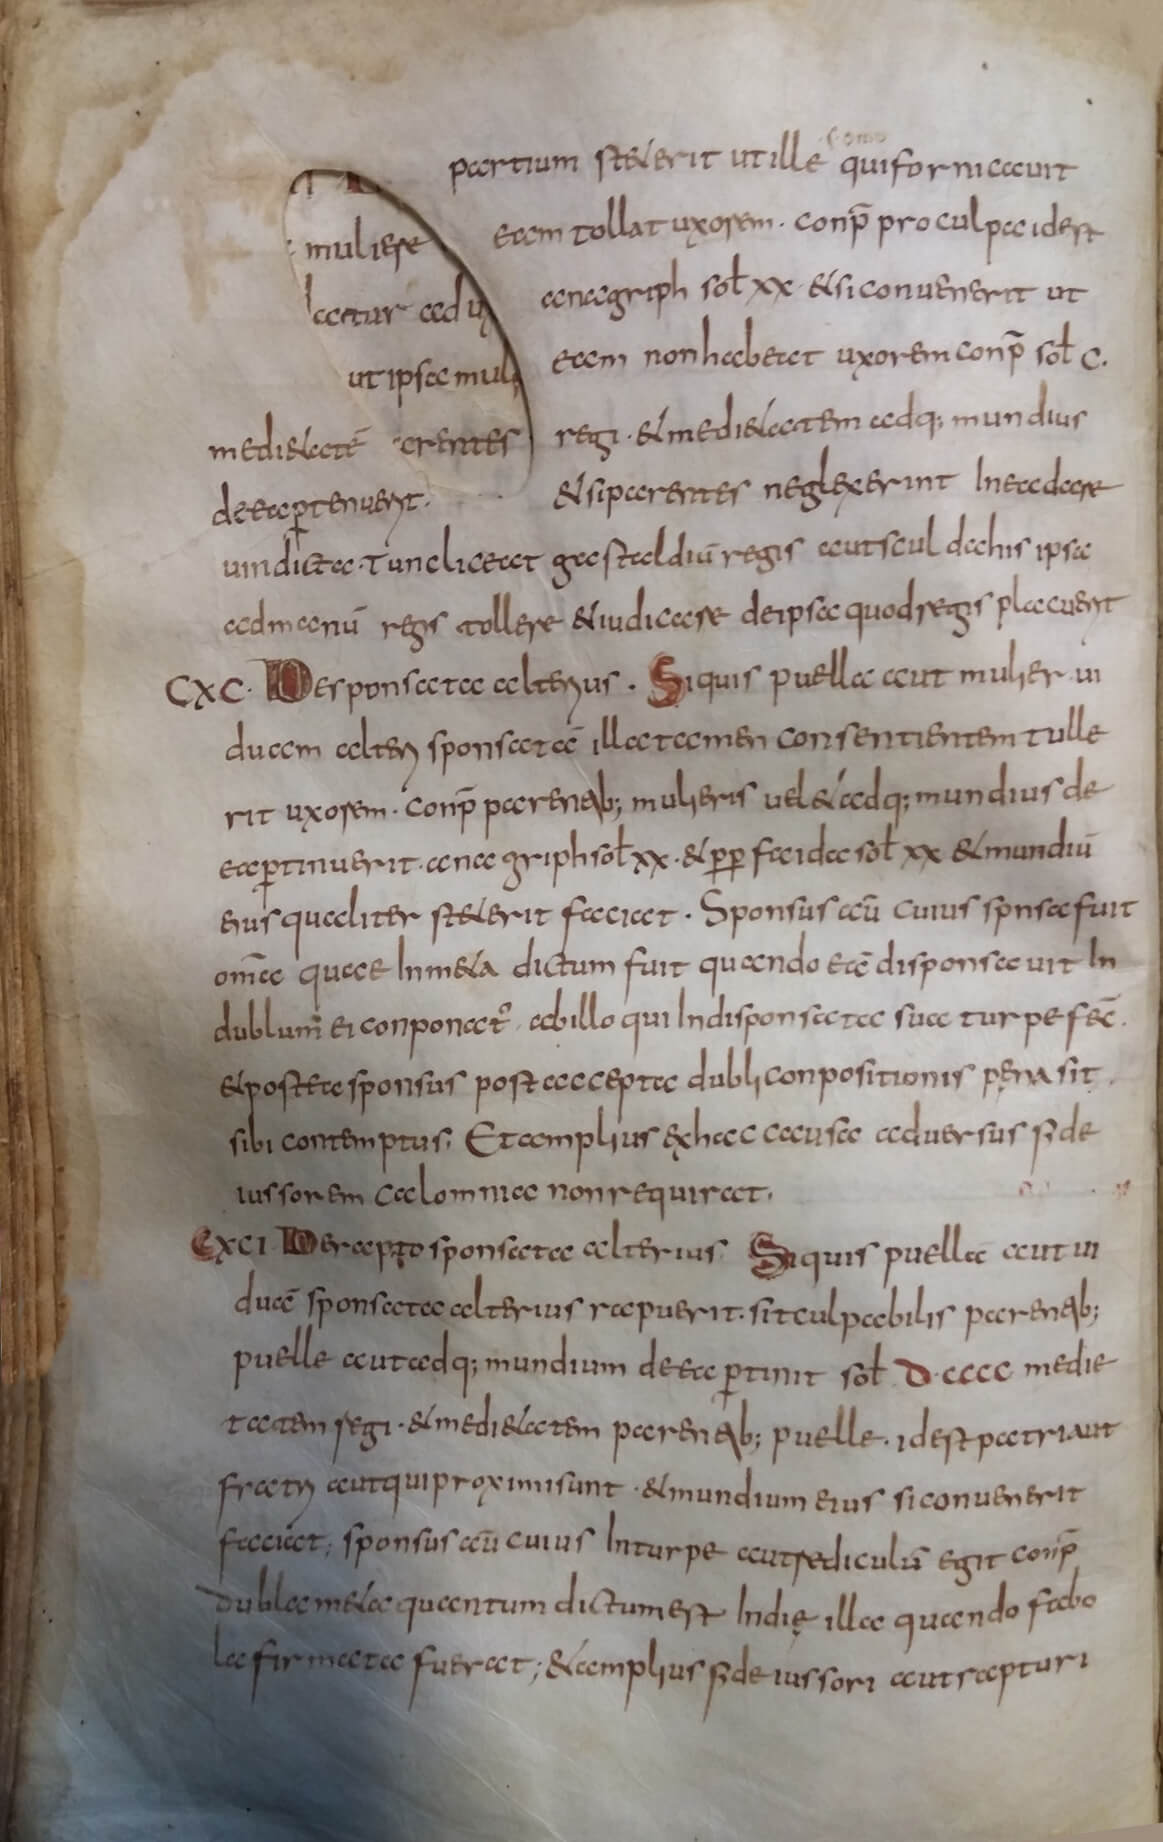 partium steterit ut ille homo qui fornicauit
muliere eam tollat uxorem · conp̄ pro culpa idest
anagriph sol xx · & si conuenerit ut
ut ipsa mul eam non habeat uxorem conp̄ sol c.
medi&atē rentes regi · & medi&atem adq; mundius
de ea ꝑtenuerit · & si parentes neglexerint In ea dare
uindicta · Tunc liceat gastaldiū regis aut sculdahis ipsa
ad manū regis tollere & iudicare de ipsa quod regis placuerit
CXC · Desponsata alterius · Siquis puella aut mulier ui
duam alteri sponsatā illa tamen consentientem tulle
rit uxorem · conp̄ parentib; mulieris uel & adq; mundius de
ea ꝑtinuerit · anagriph sol xx · & ꝑꝑ faida sol xx & mundiū
eius qualiter steterit faciat · Sponsus aū cuius spnsa fuit
om̄a quae In m&a dictum fuit quando eā disponsauit In
dublum ei conponat · ab illo qui In disponsata sua turpe fec̄.
& postea sponsus post accepta dubli conpositionis pena sit
sibi contemptus; Et amplius ex hac causa aduersus fide
iussorem calomnia non requirat.
CXCI · De rapto sponsata alterius Siquis puellā aut ui
duā sponsata alterius rapuerit · sit culpabilis parentib;
puelle aut adq; mundium de ea ꝑtinit sol D·cccc medie
tatem regi · & medi&atem parentib; puelle · idest patri aut
fratri aut qui proximi sunt · & mundium eius si conuenerit
faciat; sponsus aū cuius In turpe aut rediculū egit conp̄
dubla m&a quantum dictum est In die illa quando fabo
la firmata fuerat; & amplius fideiussori aut raptori